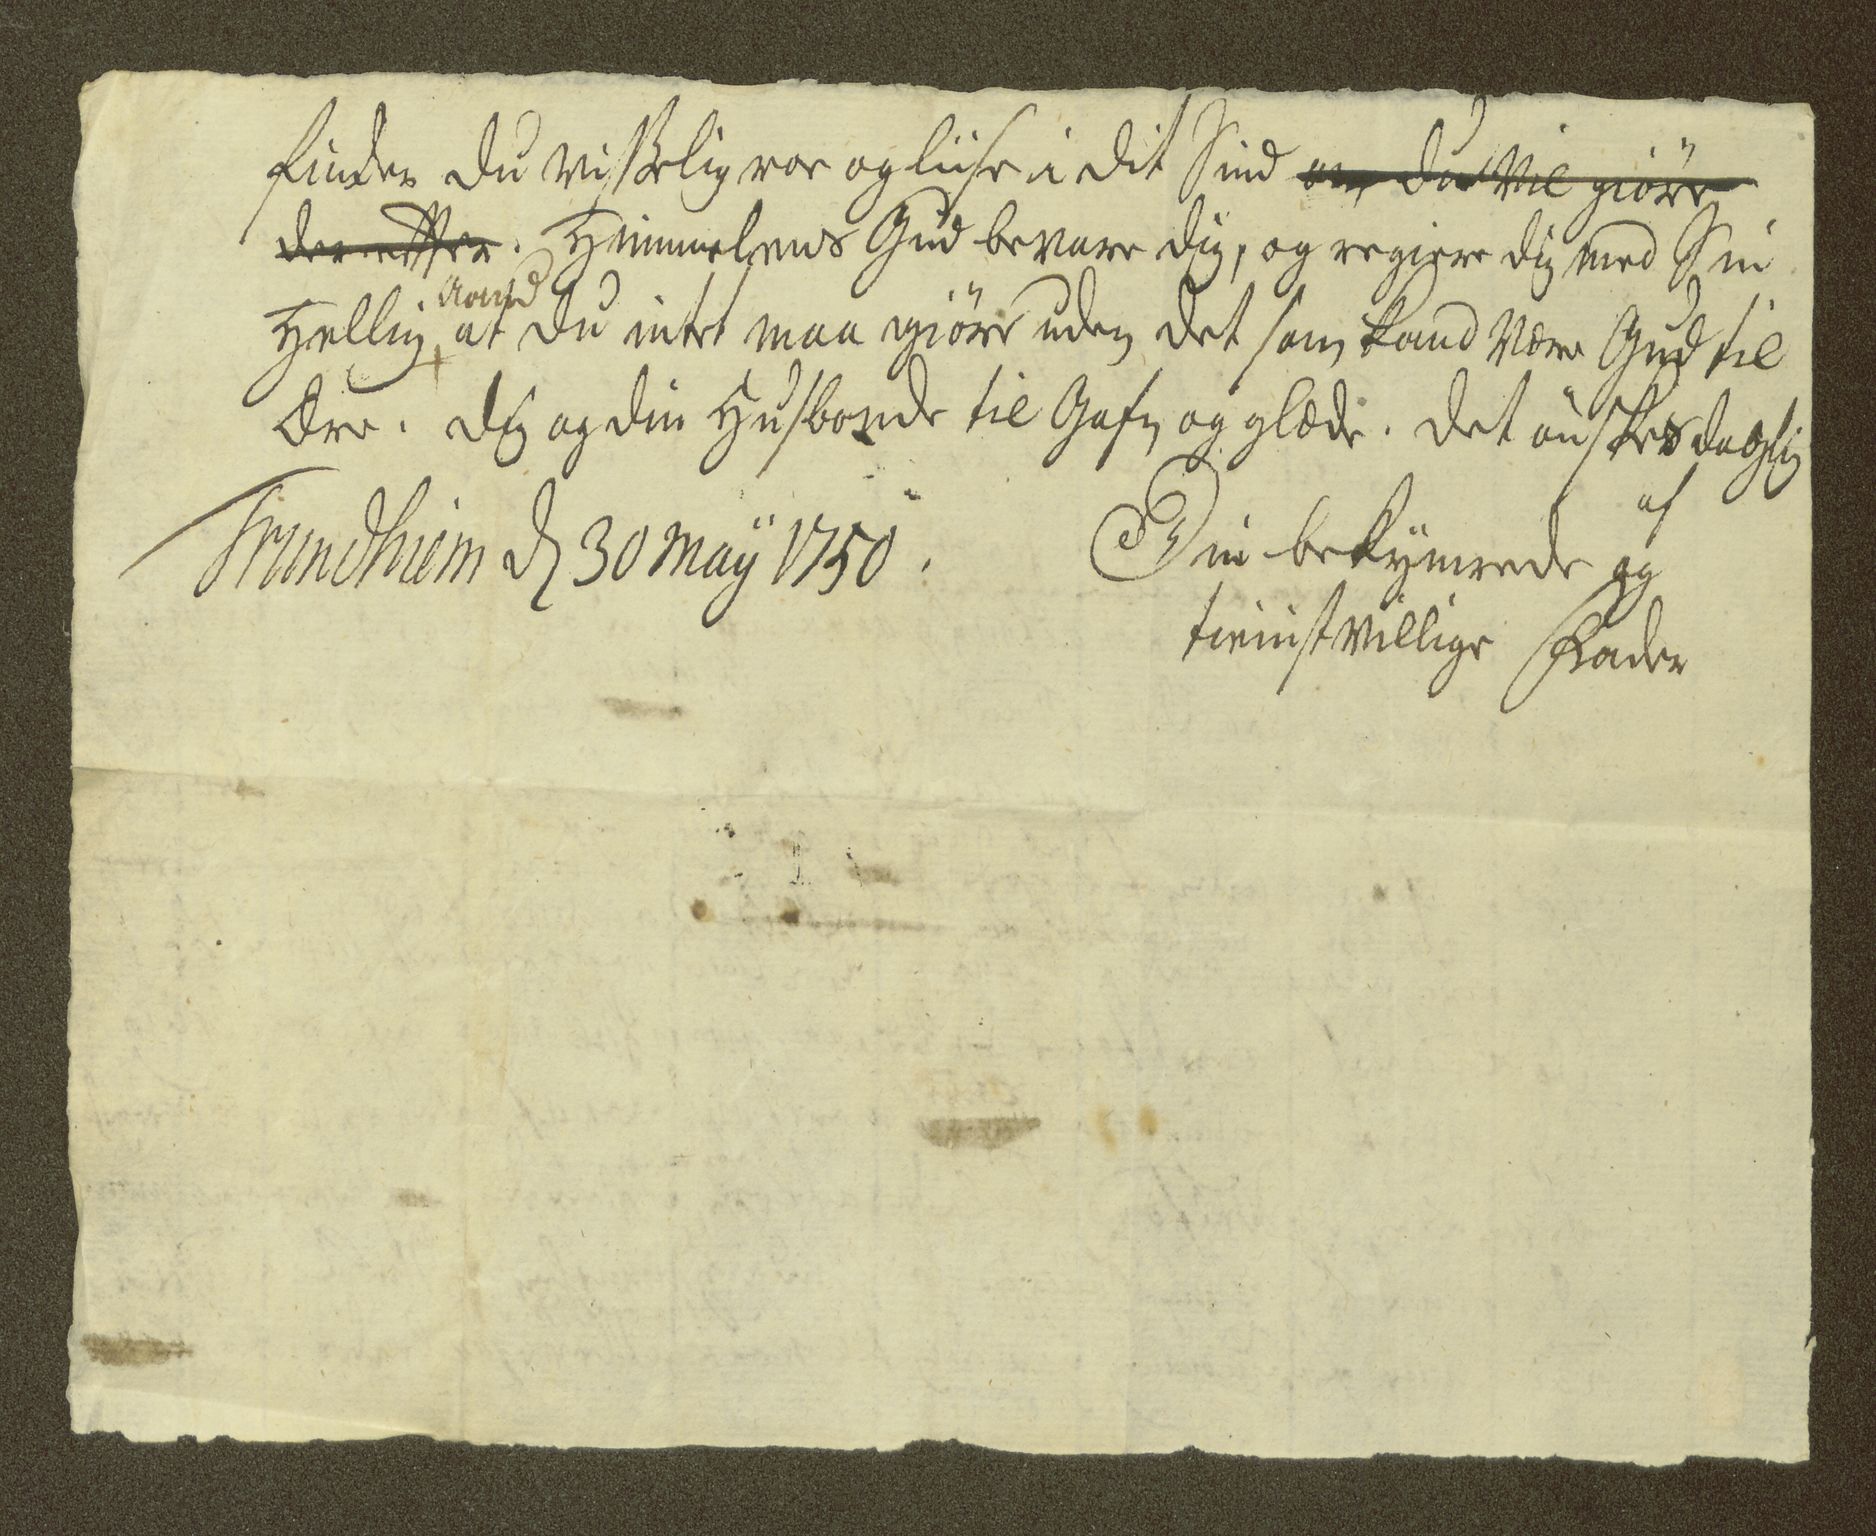 finder du visselig roe og liise i dit Sind om du vil giöre
der effter. Himmelens Gud bevare dig, og regiere dig med Sin
Hellig Aand at du intet maa giöre uden det som kand være Gud til
Ære. dig og din Husbonde til Gafn og glæde. det önskes daglig
af
Trundhiem d 30 Maÿ 1750. Din bekÿmrede og
tienistvillige Fader